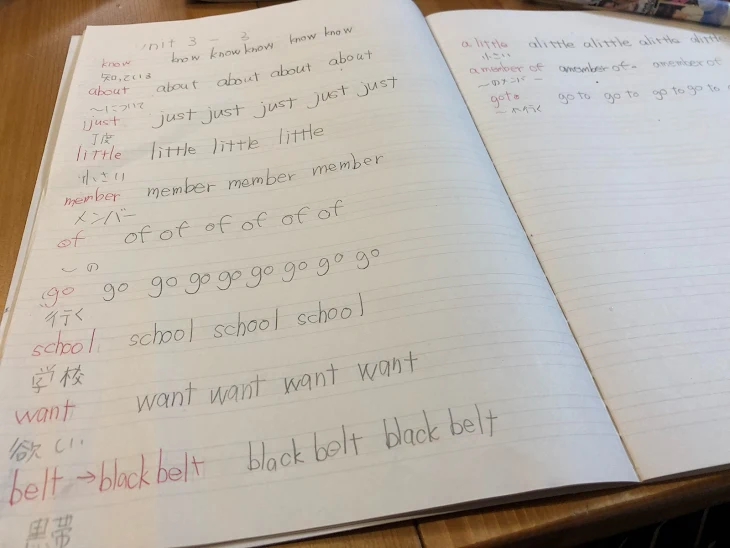 unit 3 - 3
know know know know know know
知っている
about about about about about
〜について
just just just just just just
丁度
little little little little
小さい
member member member member
メンバー
of of of of of of of
〜の
go go go go go go go go
行く
school school school school
学校
want want want want want
欲しい
belt → black belt black belt black belt
黒帯
a little a little a little a little a little
小さい
a member of a member of a member of
〜のメンバー
go to go to go to go to go to
〜へ行く